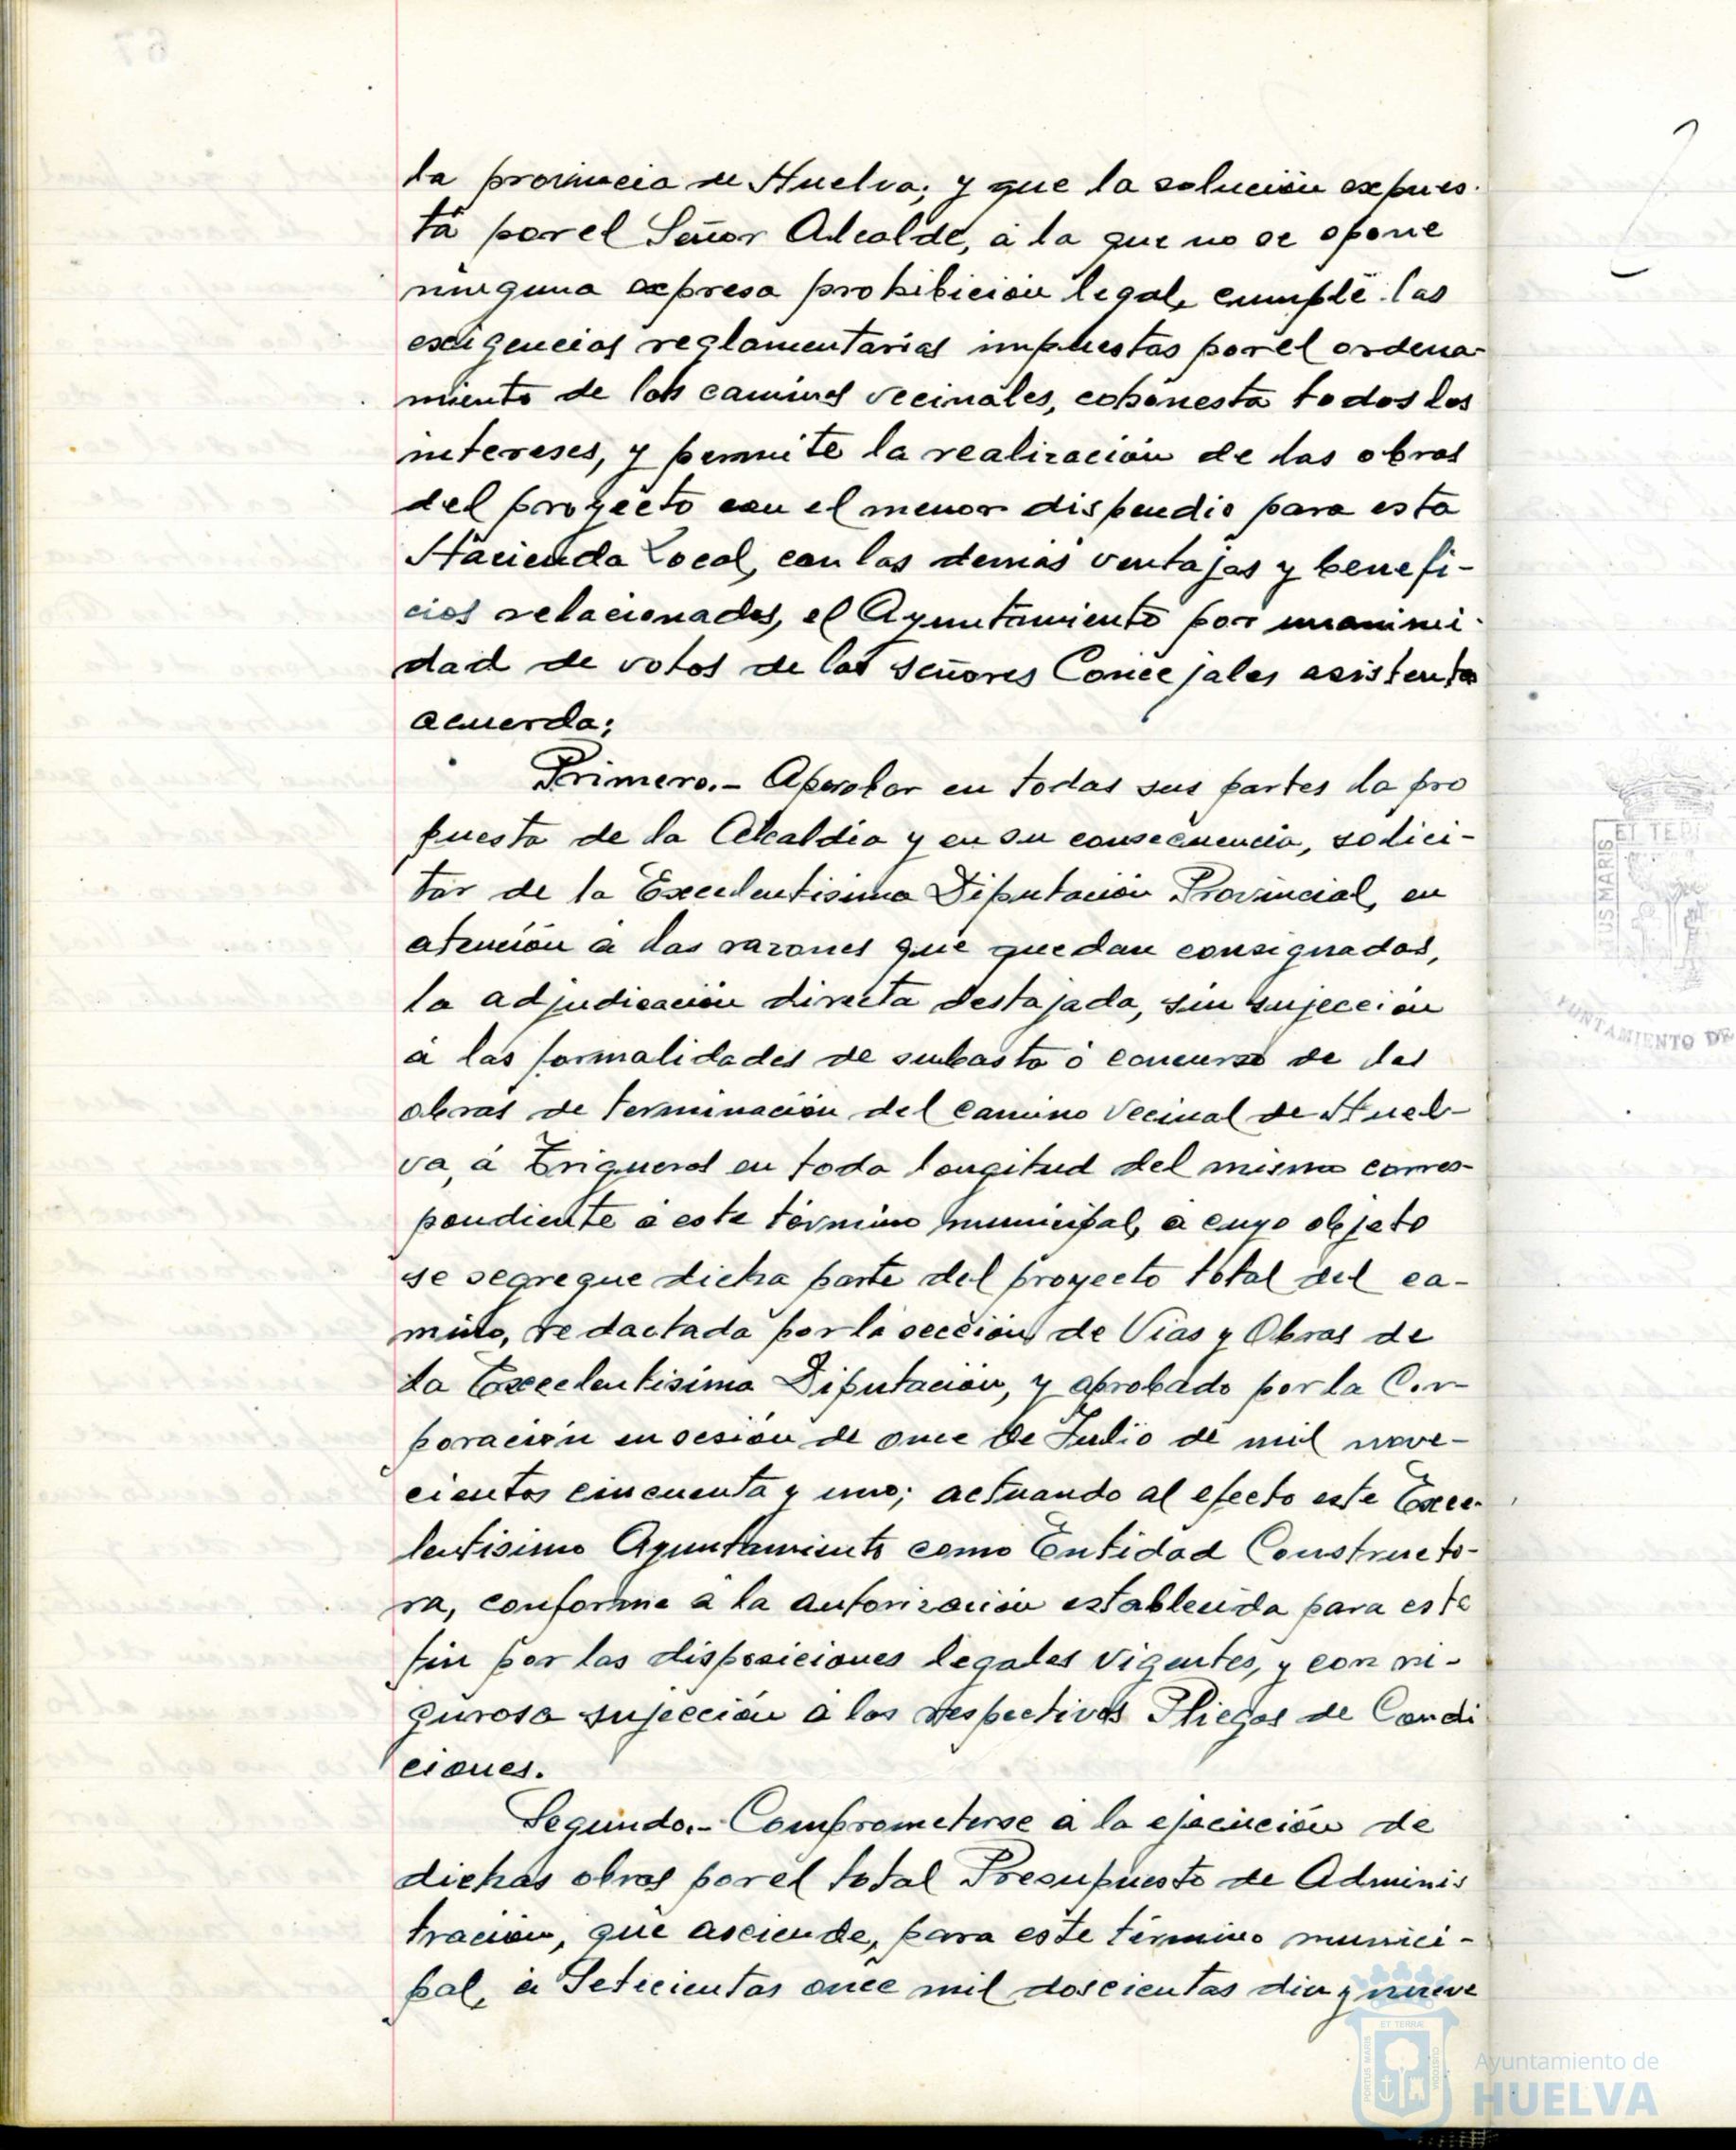 la provincia de Huelva; y que la solución expues-
ta por el Señor Alcalde, á la que no se opone
ninguna expresa prohibición legal, cumple las
exigencias reglamentarias impuestas por el ordena-
miento de los caminos vecinales, cohonesta todos los
intereses, y permite la realización de las obras
del proyecto con el menor dispendio para esta
Hacienda Local, con las demás ventajas y benefi-
cios relacionados, el Ayuntamiento por unanimi-
dad de votos de los señores Concejales asistentes
acuerda:
Primero.- Aprobar en todas sus partes la pro
puesta de la Alcaldia y en su consecuencia, solici-
tar de la Excelentisima Diputación Provincial, en
atención á las razones que quedan consignadas,
la adjudicación directa destajada, sin sujección
á las formalidades de subasta ó concurso de las
obras de terminación del camino vecinal de Huel-
va, á Trigueros en toda longitud del mismo corres-
pondiente á este término municipal, a cuyo objeto
se segregue dicha parte del proyecto total del ca-
mino, redactada por la sección de Vias y Obras de
la Excelentisima Diputación, y aprobado por la Cor-
poración en sesión de once de Julio de mil nove-
cientos cincuenta y uno; actuando al efecto este Exce-
lentisimo Ayuntamiento como Entidad Constructo-
ra, conforme á la autorización establecida para este
fin por las disposiciones legales vigentes, y con ri-
gurosa sujección á los respectivos Pliegos de Condi
ciones.
Segundo.- Comprometerse á la ejecución de
dichas obras por el total Presupuesto de Adminis
tración, que asciende, para este término munici-
pal, á Setecientas once mil doscientas diez y nueve
ET TERR
US MARIS
UNTAMIENTO DE
PORTUS MARIS
ET TERRAE
CUSTODIA
Ayuntamiento de
HUELVA